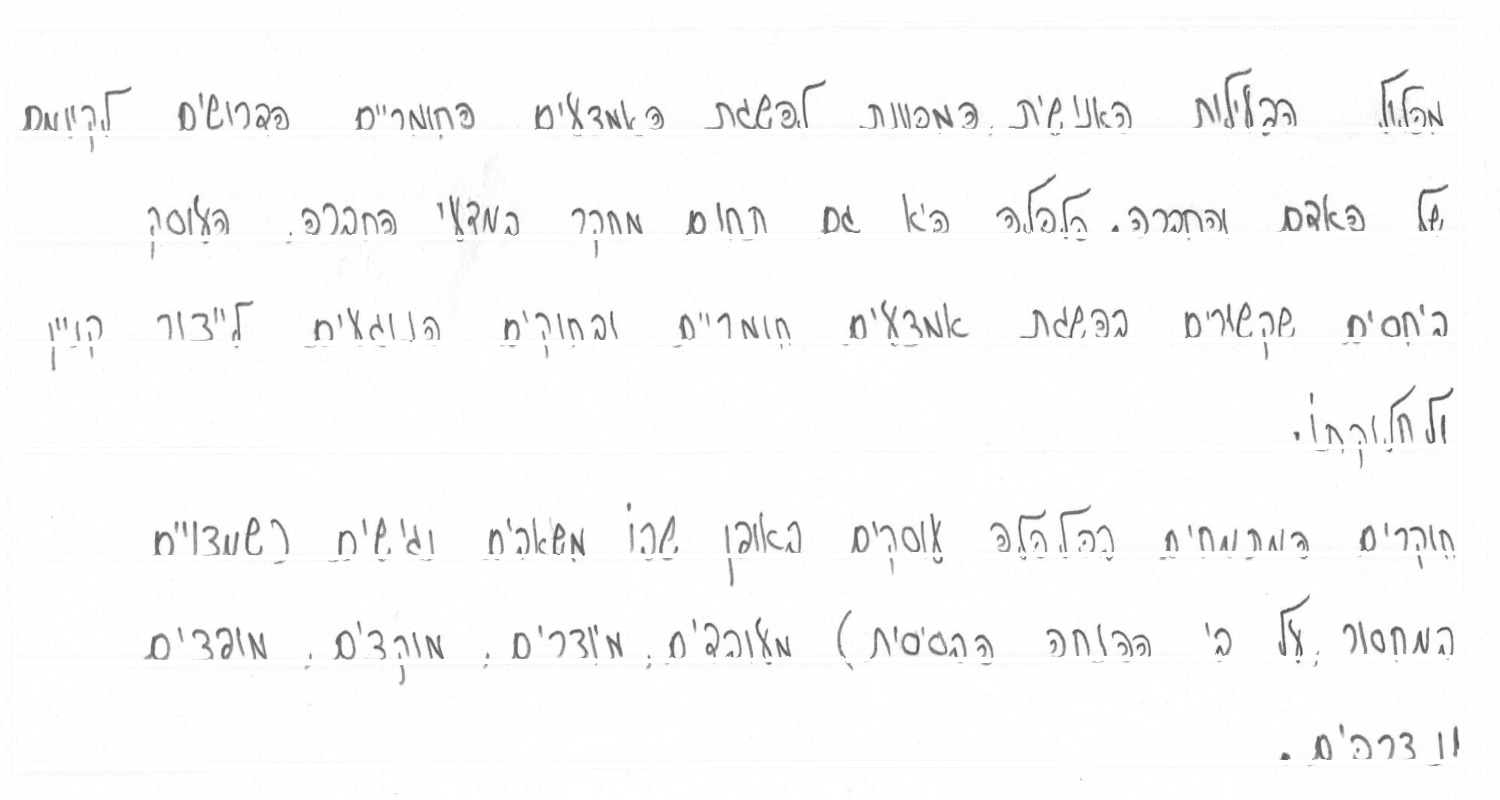 מכלול הפעילות האנושית המכוונת להשגת האמצעים החומריים הדרושים לקיומם
של האדם והחברה. הכלכלה היא גם תחום מחקר במדעי החברה, העוסק
ביחסים שקשורים בהשגת אמצעים חומריים ובחוקים הנוגעים לייצור קניין
ול חלוקתו.
חוקרים המתמחים בכלכלה עוסקים באופן שבו משאבים וגישים
המחסור, על פי ההנחה הבסיסית) מעובדים, מיוצרים, מוקצים, מופצים
ונצרכים.